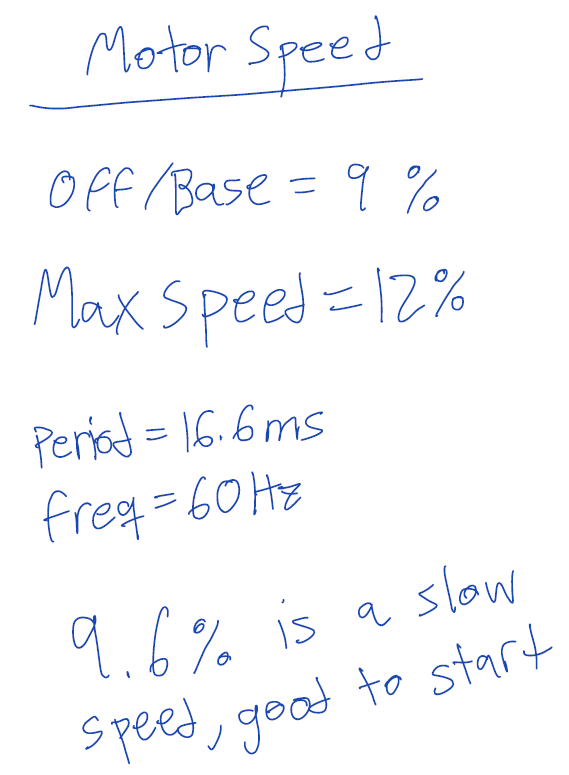 Motor Speed
Off/Base = 9 %
Max Speed = 12%
Period = 16.6ms
freq = 60Hz
9.6% is a slow
speed, good to start